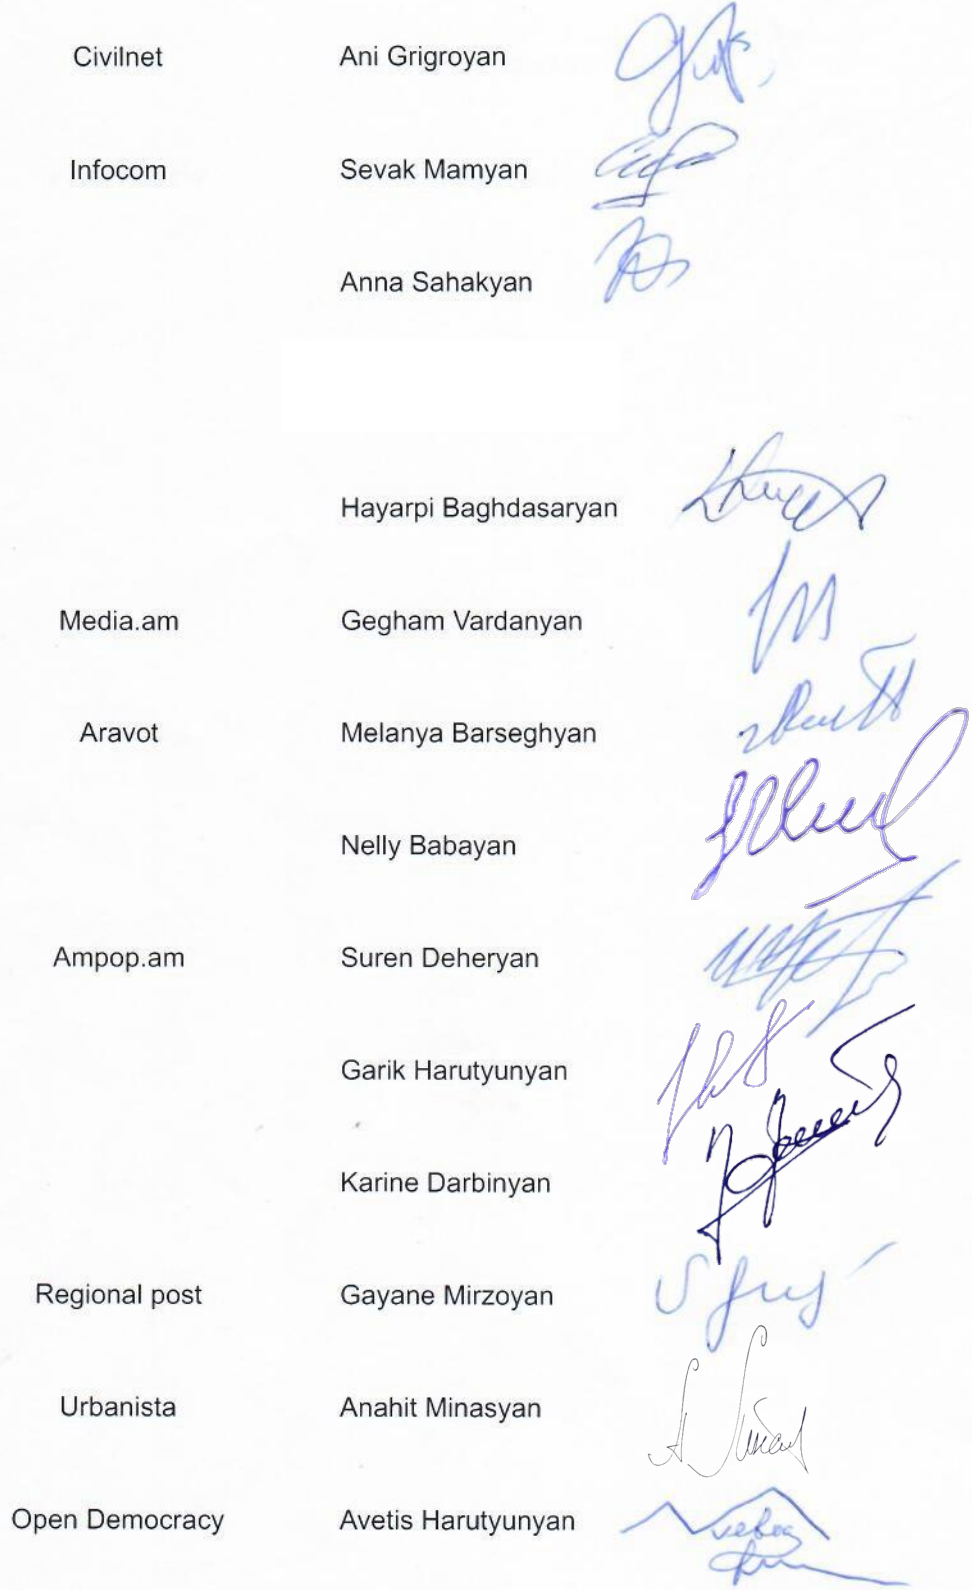 Civilnet Ani Grigroyan
Infocom Sevak Mamyan
Anna Sahakyan
Hayarpi Baghdasaryan
Media.am Gegham Vardanyan
Aravot Melanya Barseghyan
Nelly Babayan
Ampop.am Suren Deheryan
Garik Harutyunyan
Karine Darbinyan
Regional post Gayane Mirzoyan
Urbanista Anahit Minasyan
Open Democracy Avetis Harutyunyan